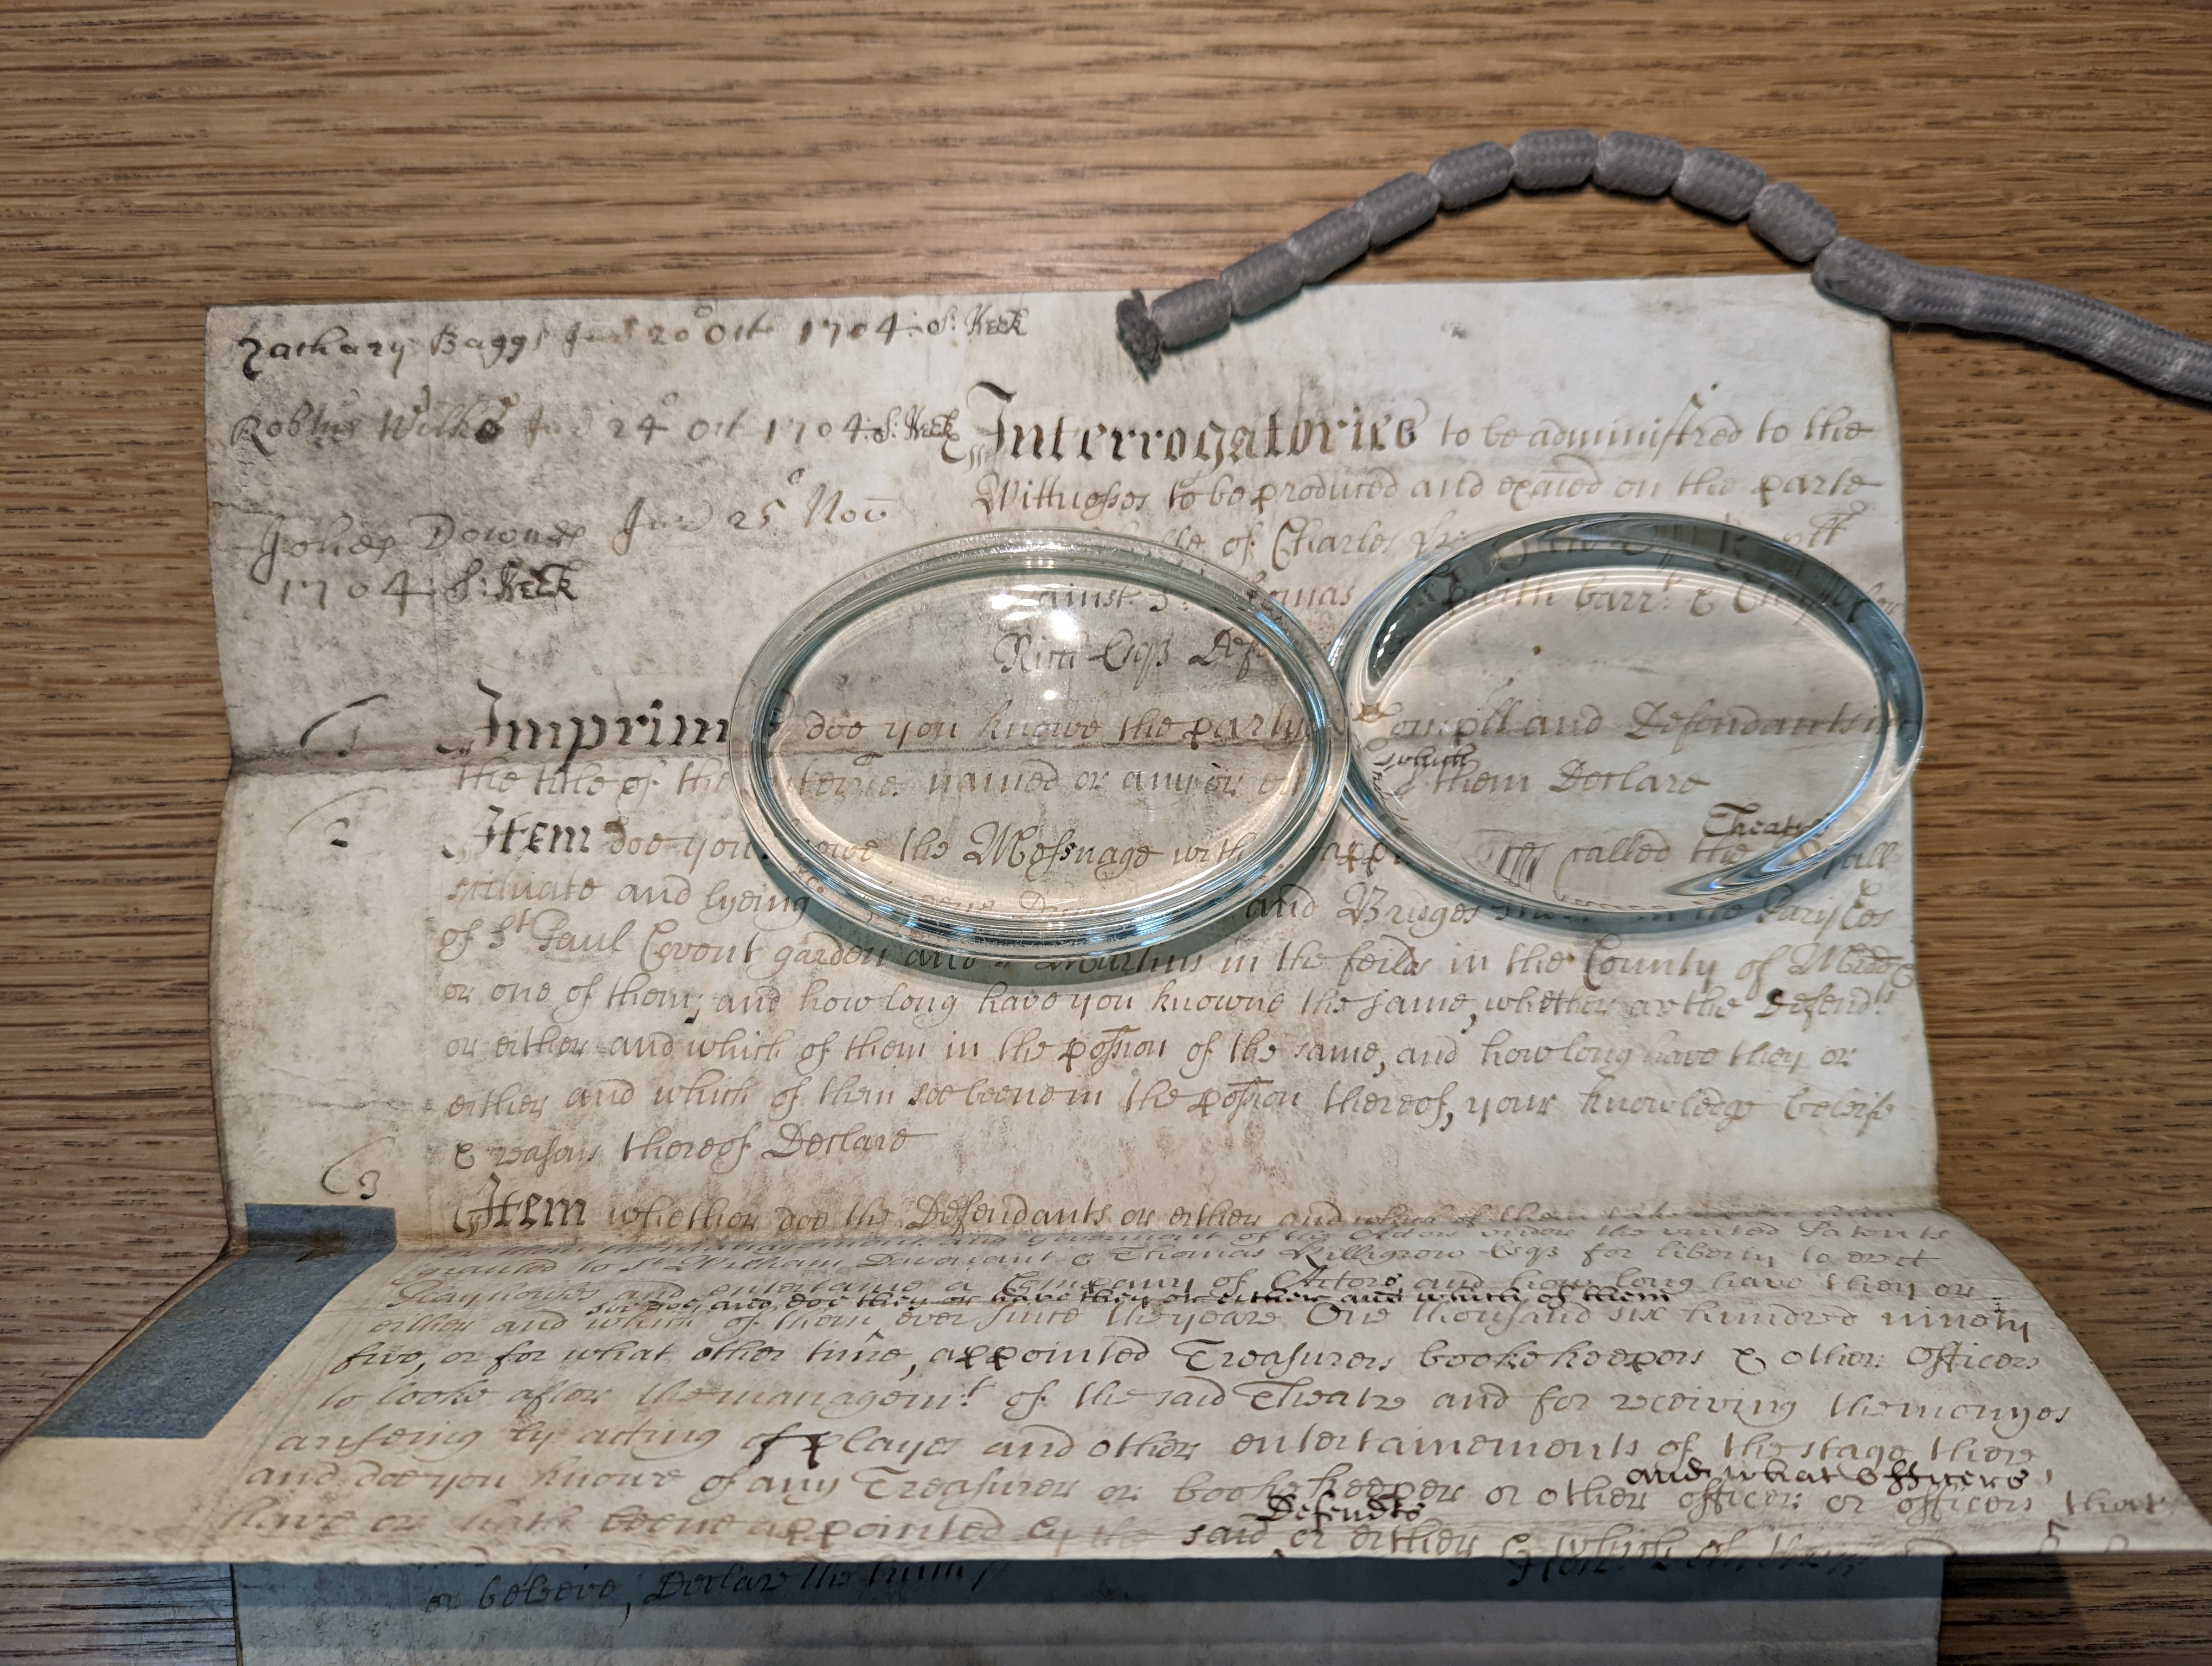 Zachary Baggs Jur 20o Oct 1704. S: Keck
Robtus Wilks Jur 24o Oct 1704. S: Keck
Johes Downes Jur 25o Nov
1704 S: Keck
Interrogatories to be administred to the
Wittnesses to be produced and exaied on the parte
of Charles
ainst Sr: omas barrt: &
Rich Esqs Def
1 Imprim doe you knowe the party Compllt and Defendants in
the title of the named or any or which of them Declare
2 Item doe you knowe the Messuage with called the Theatre
scituate and lyeing and Bridges in the Parishes
of St Paul Covent garden and Martins in the feilds in the County of Middx
or one of them, and how long have you knowne the same, whether are the Defendts:
or either and which of them in the possion of the same, and how long have they or
either and which of them soe beene in the possion thereof, your knowledge beleife
& reasons thereof Declare
3 Item whether doe the Defendants or either and which of them
of the under the united Patents
granted to Sr William Davenant & Thomas Killigrew Esqs for liberty to erect
Playhouses and entertaine a Company of Actors and how long have they or
soe doe, and doe they or have they or either and which of them
either and which of them ever since the yeare One thousand six hundred ninety
five, or for what other time, appointed Treasurers bookekeepers & other Officers
to looke after the managemt: of the said Theatre and for receiving the monyes
ariseing by acting of Playes and other entertainements of the stage there
and what officers
and doe you knowe of any Treasurer or bookekeeper or other officer or officers that
Defendts
have or hath beene appointed by the said or either & which of them
or beleive, Declare the truth